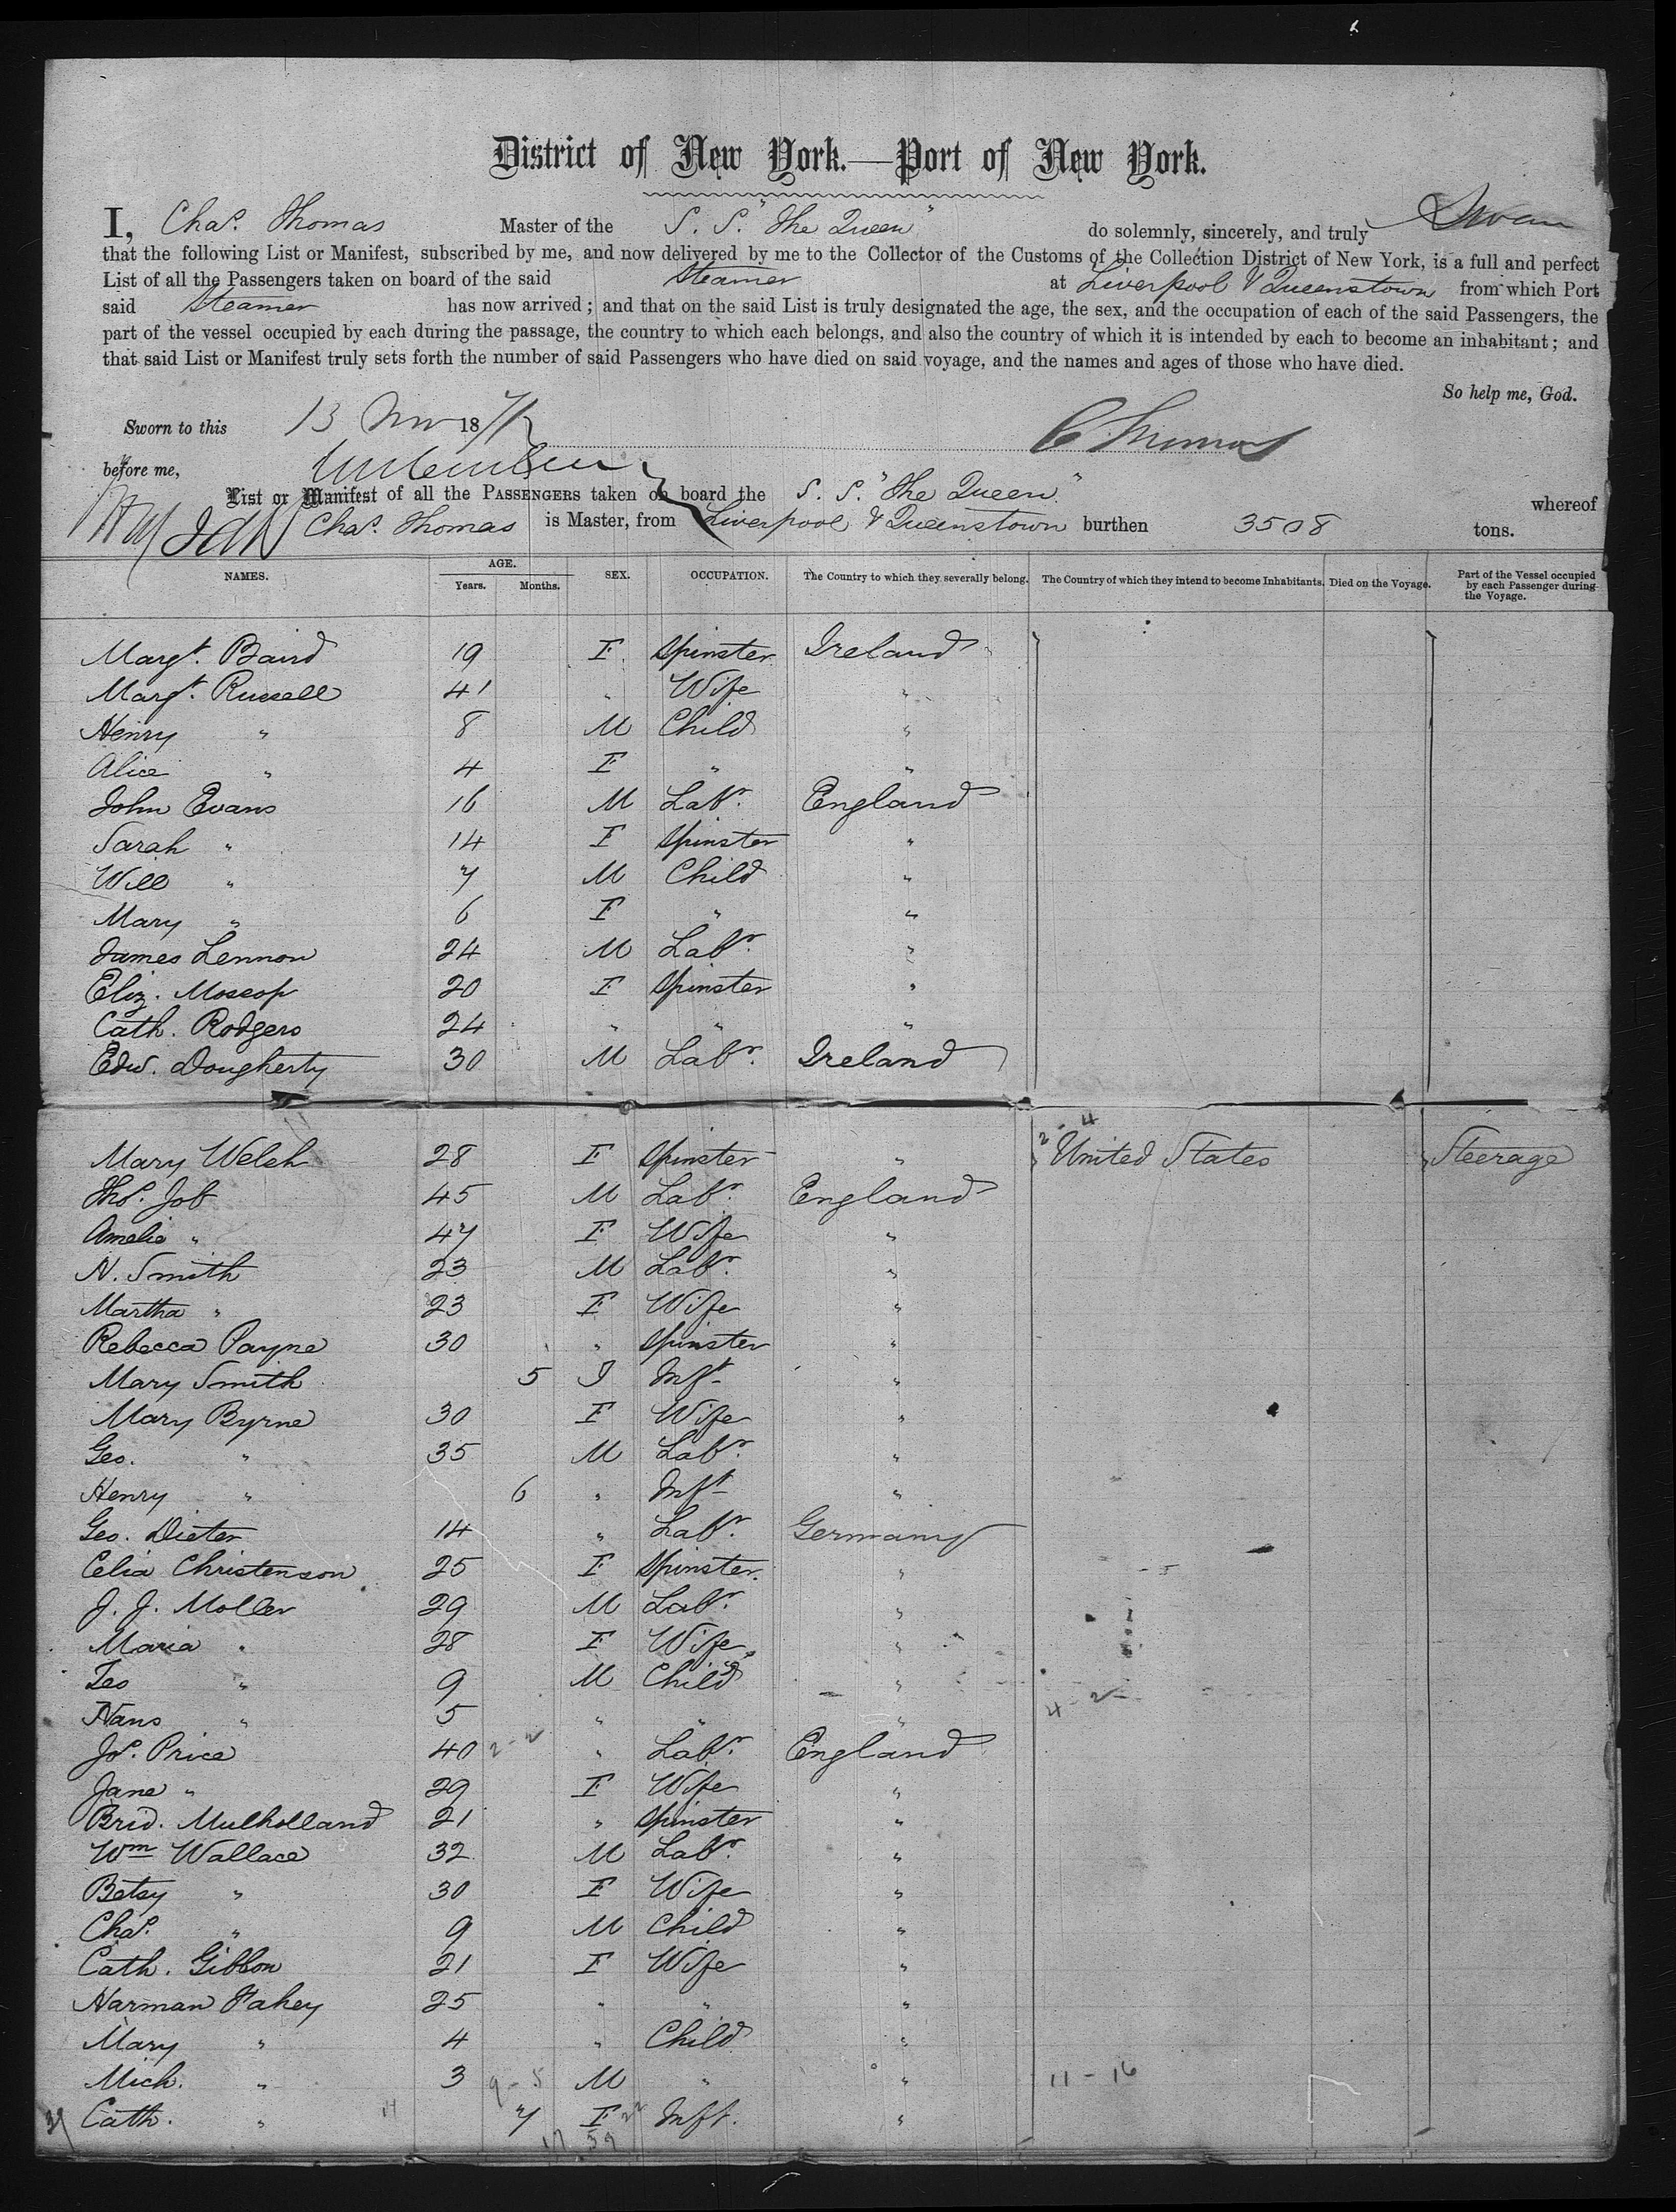 District of New York.—Port of New York.
I, Chas. Thomas Master of the S. S. "The Queen" do solemnly, sincerely, and truly Swear
that the following List or Manifest, subscribed by me, and now delivered by me to the Collector of the Customs of the Collection District of New York, is a full and perfect
List of all the Passengers taken on board of the said Steamer at Liverpool & Queenstown from which Port
said Steamer has now arrived; and that on the said List is truly designated the age, the sex, and the occupation of each of the said Passengers, the
part of the vessel occupied by each during the passage, the country to which each belongs, and also the country of which it is intended by each to become an inhabitant; and
that said List or Manifest truly sets forth the number of said Passengers who have died on said voyage, and the names and ages of those who have died.
So help me, God.
Sworn to this 13 Nov 1871
C Thomas
before me,
List or Manifest of all the PASSENGERS taken on board the S. S. "The Queen" whereof
Chas. Thomas is Master, from Liverpool & Queenstown burthen 3508 tons.
NAMES. AGE. Years. Months. SEX. OCCUPATION. The Country to which they severally belong. The Country of which they intend to become Inhabitants. Died on the Voyage. Part of the Vessel occupied by each Passenger during the Voyage.
Margt. Baird 19 F Spinster Ireland
Margt. Russell 41 " Wife "
Henry " 8 M Child "
Alice " 4 F " "
John Evans 16 M Labr. England
Sarah " 14 F Spinster "
Will " 7 M Child "
Mary " 6 F " "
James Lennon 24 M Labr. "
Eliz. Moscop 20 F Spinster "
Cath. Rodgers 24 " " "
Edw. Dougherty 30 M Labr. Ireland
Mary Welsh 28 F Spinster " United States Steerage
Thos. Job 45 M Labr. England
Amelia " 47 F Wife "
N. Smith 23 M Labr. "
Martha " 23 F Wife "
Rebecca Payne 30 " Spinster "
Mary Smith 5 I Inft. "
Mary Byrne 30 F Wife "
Geo. " 35 M Labr. "
Henry " 6 " Inft "
Geo. Dieter 14 " Labr. Germany
Celia Christenson 25 F Spinster. "
J. J. Moller 29 M Labr. "
Maria " 28 F Wife "
Leo " 9 M Child "
Hans " 5 " " " 4 - 2
Jos. Price 40 2 - 2 " Labr. England
Jane " 29 F Wife "
Brid. Mulholland 21 " Spinster "
Wm Wallace 32 M Labr. "
Betsy " 30 F Wife "
Chas. " 9 M Child "
Cath. Gibbon 21 F Wife "
Harman Fahey 25 " " "
Mary " 4 " Child "
Mich. " 3 9 - 5 M " " 11 - 16
Cath. " 7 F Inft. "
17 59